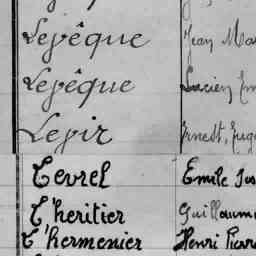 Lepêque Jean Ma
Lepêque Lucien Em
Lepir Ernest, Eug
Tevrel Emile Jos
L'heritier Guillaum
L'hermenier Henri Pierr